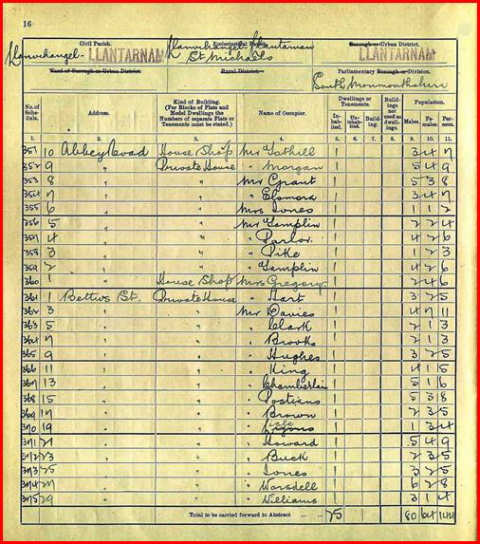 16
Civil Parish.
Ecclesiastical Parish.
Borough or Urban District.
Llanvihangel LLANTARNAM
Llanvihangel Llantarnam
St Michaels
LLANTARNAM
Ward of Borough or Urban District.
Rural District.
Parliamentary Borough or Division.
South Monmouthshire
No. of Schedule.
Address.
Kind of Building.
(For Blocks of Flats and Model Dwellings the Numbers of separate Flats or Tenements must be stated.)
Name of Occupier.
Dwellings or Tenements.
Inhabited.
Uninhabited.
Building.
Buildings not used as dwellings.
Population.
Males.
Females.
Persons.
1. 2. 3. 4. 5. 6. 7. 8. 9. 10. 11.
351 10 Abbey Road House Shop Mr Tothill 1 3 4 7
352 9 " Private House " Morgan 1 5 4 9
353 8 " " Mr Grant 1 5 3 8
354 7 " " " 1 3 4 7
355 6 " " Mrs Jones 1 1 1 2
356 5 " " Mr Gamplin 1 2 2 4
357 4 " " " Parlor 1 4 2 6
358 3 " " " Pike 1 1 2 3
359 2 " " " Gamplin 1 4 2 6
360 1 " House Shop Mrs Gregory 1 2 4 6
361 1 Bettws St. Private House " Hart 1 3 2 5
362 3 " " Mr Davies 1 4 7 11
363 5 " " " Clark 1 2 1 3
364 7 " " " Brooks 1 2 1 3
365 9 " " " Hughes 1 3 2 5
366 11 " " " King 1 4 1 5
367 13 " " " Chamberlain 1 5 1 6
368 15 " " " 1 5 3 8
369 17 " " " Brown 1 2 3 5
370 19 " " " 1 1 3 4
371 21 " " " Howard 1 5 4 9
372 23 " " " Buck 1 2 3 5
373 25 " " " Jones 1 3 2 5
374 27 " " " Worsdell 1 6 2 8
375 29 " " " Williams 1 3 1 4
Total to be carried forward to Abstract 25 80 64 144